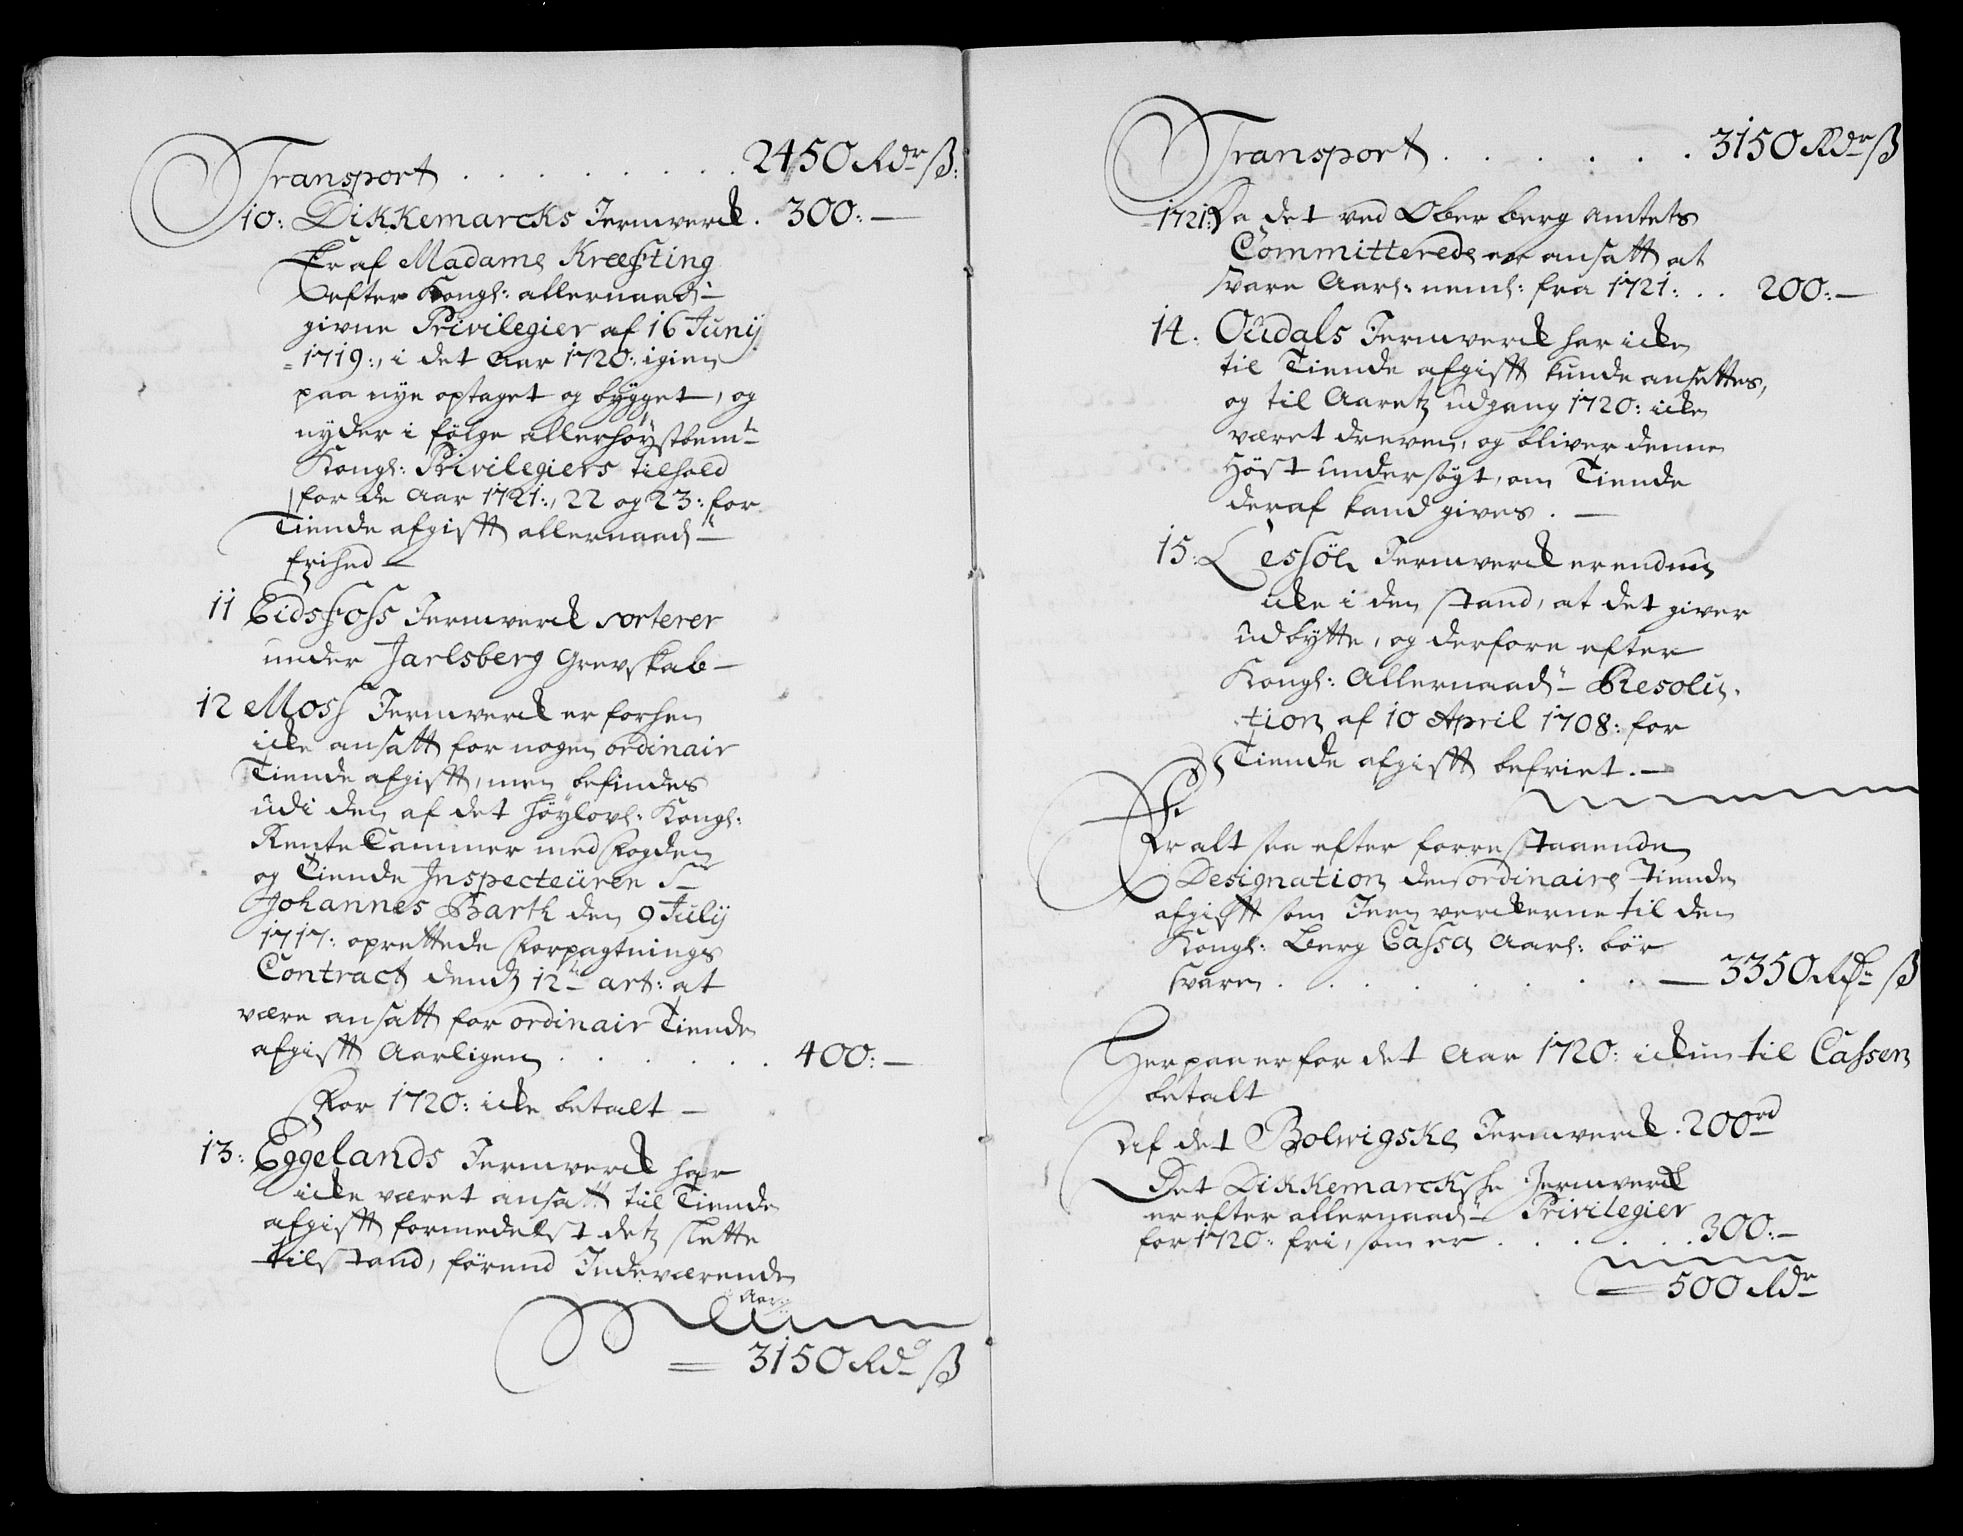 Transport . . . . . . . . 2450 Rdr ß:
10: Dikkemarcks Jernverck . 300:—
Er af Madame Kreefting
efter Kongl: allernaadst
givne Privilegier af 16 Junij
1719:, i det Aar 1720: igien
paa nye optaget og bÿgget, og
nyder i følge allerhøÿstbemte
Kongl: Privilegiers tilhold
for de Aar 1721:, 22 og 23: for
Tiende afgifft allernaadst
frihed —
11 Eidsfoss Jernverck sorterer
under Jarlsberg Grevskab —
12 Moss Jernverck er forhen
icke ansatt for nogen ordinair
Tiende afgifft, men befindes
udi den af det høylovl: Kongl:
Rente Cammer med Fogden
og Tiende Inspecteüren Sr
Johannes Barth den 9 Julij
1717: oprettede Forpagtnings
Contract dends 12te art: at
være ansatt for ordinair Tiende
afgifft Aarligen . . . . . . 400:—
For 1720: icke betalt —
13: Eggelands Jernverck har
icke været ansatt til Tiende
afgifft formedelst dets slette
tilstand, førend Indeværende
Aar:
= 3150 Rdr ß
Transport . . . . . . . 3150 Rdr ß
1721: Da det ved Ober berg Amtets
Committerede er ansatt at
svare Aarl: neml: fra 1721: . . 200:—
14: Oudals Jernverck har icke
til Tiende afgifft kunde ansettes,
og til Aarets udgang 1720: icke
været dreven, og bliver denne
Høst undersøgt, om Tiende
deraf kand gives . —
15: Lessøe Jernverck er endnu
icke i den stand, at det giver
udbytte, og derfore efter
Kongl: Allernaadst Resolu-
tion af 10 April 1708: for
Tiende afgifft befriet. —
Er altsaa efter forrestaaende
Designation den ordinaire Tiende
afgifft som Jern verckerne til den
Kongl: Berg Cassa Aarl: bør
svare . . . . . . . . . — 3350 Rdr ß
Herpaa er for det Aar 1720: ickun til Cassen
betalt
Af det Bolwigske Jernverck . 200rd
Det Dikkemarckske Jernverck
er efter allernaadst Privilegier
for 1720: fri, som er . . . . . . 300:—
= 500 Rdr